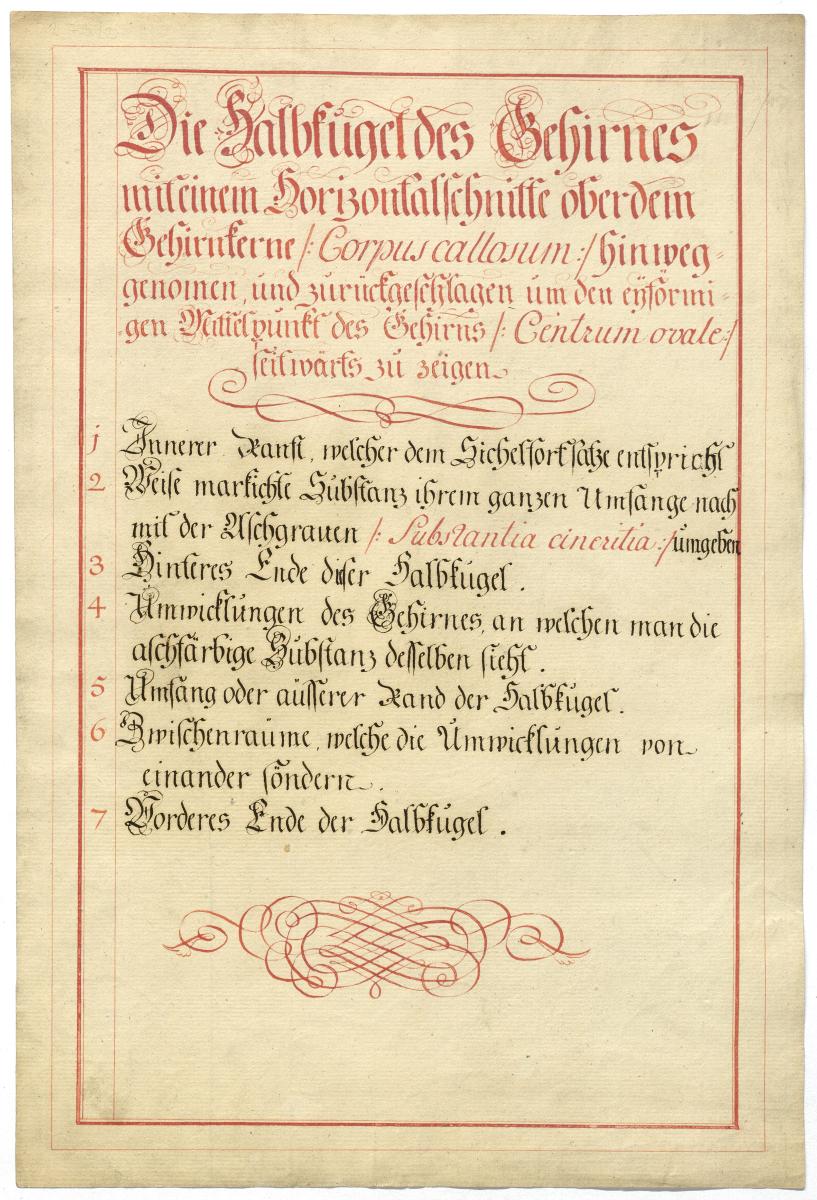 Die Halbkugel des Gehirnes
mit einem Horizontalschnitte ober dem
Gehirnkerne /: Corpus callosum :/ hinweg=
genomen, und zurückgeschlagen um den eyförmi=
gen Mittelpunkt des Gehirns /: Centrum ovale :/
seitwärts zu zeigen
1 Innerer Ranft, welcher dem Sichelfortsatze entspricht
2 Weise markichte Substanz ihrem ganzen Umfange nach
mit der Aschgrauen /: Substantia cineritia :/ umgeben
3 Hinteres Ende diser Halbkugel.
4 Umwicklungen des Gehirnes, an welchen man die
aschfärbige Substanz desselben sieht.
5 Umfang oder äusserer Rand der Halbkugel.
6 Zwischenraume, welche die Umwicklungen von
einander söndern.
7 Vorderes Ende der Halbkugel.